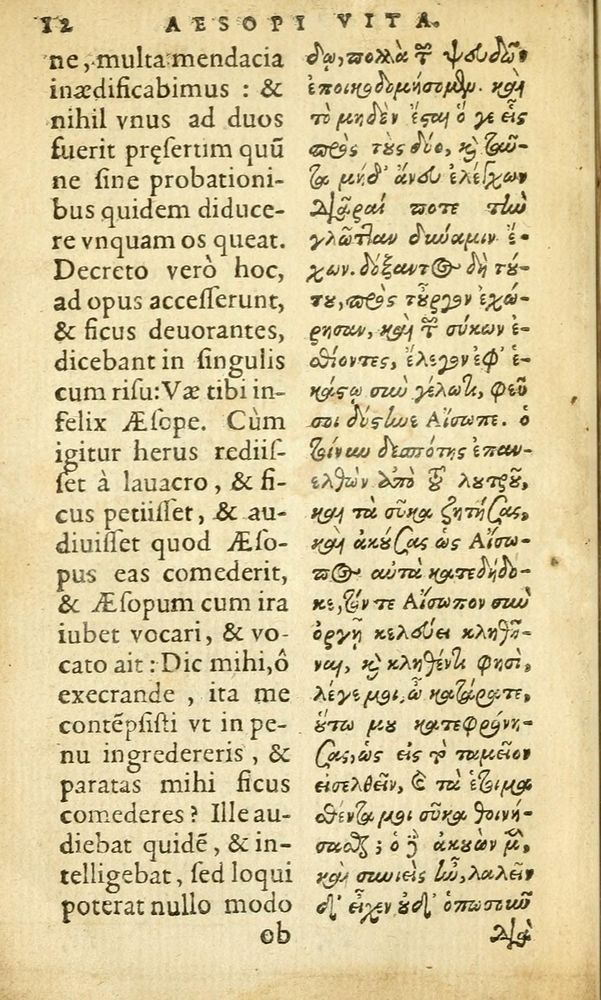 12 AESOPI VITA.
ne, multa mendacia
inædificabimus : &
nihil vnus ad duos
fuerit pręſertim quū
ne ſine probationi-
bus quidem diduce-
re vnquam os queat.
Decreto verò hoc,
ad opus acceſſerunt,
& ficus deuorantes,
dicebant in ſingulis
cum riſu: Væ tibi in-
felix Æſope. Cùm
igitur herus rediiſ-
ſet à lauacro, & fi-
cus petiiſſet, & au-
diuiſſet quod Æſo-
pus eas comederit,
& Æſopum cum ira
iubet vocari, & vo-
cato ait : Dic mihi, ô
execrande, ita me
contēpſiſti vt in pe-
nu ingredereris, &
paratas mihi ficus
comederes? Ille au-
diebat quidē, & in-
telligebat, ſed loqui
poterat nullo modo
ob
δω, πολλὰ τῶν ψευδῶν
ἐποικοδομήσομεν. καὶ
τὸ μηδὲν ἔσται ὅ γε εἷς
πρὸς τοὺς δύο, καὶ ταῦ-
τα μηδ' ἄνευ ἐλέγχων
διᾶραί ποτε τὴν
γλῶτταν δύναμιν ἔ-
χων. δόξαντος δὴ τού-
του, πρὸς τοὖργον ἐχώ-
ρησαν, καὶ τῶν σύκων ἐ-
σθίοντες, ἔλεγον ἐφ' ἑ-
κάστῳ σὺν γέλωτι, φεῦ
σοι δύστηνε Αἴσωπε. ὁ
τοίνυν δεσπότης ἐπαν-
ελθὼν ἀπὸ τοῦ λουτροῦ,
καὶ τὰ σῦκα ζητήσας,
καὶ ἀκούσας ὡς Αἴσω-
πος αὐτὰ κατεδήδο-
κε, τόν τε Αἴσωπον σὺν
ὀργῇ κελεύει κληθῆ-
ναι, καὶ κληθέντι φησὶ,
λέγε μοι, ὦ κατάρατε,
οὕτω μου κατεφρόνη-
σας, ὡς εἰς τὸ ταμεῖον
εἰσελθεῖν, καὶ τὰ ἑτοιμα-
σθέντα μοι σῦκα θοινή-
σασθαι; ὁ δὲ ἀκούων μὲν,
καὶ συνιεὶς ἦν, λαλεῖν
δ' εἶχεν οὐδ' ὁπωστιοῦν
διὰ